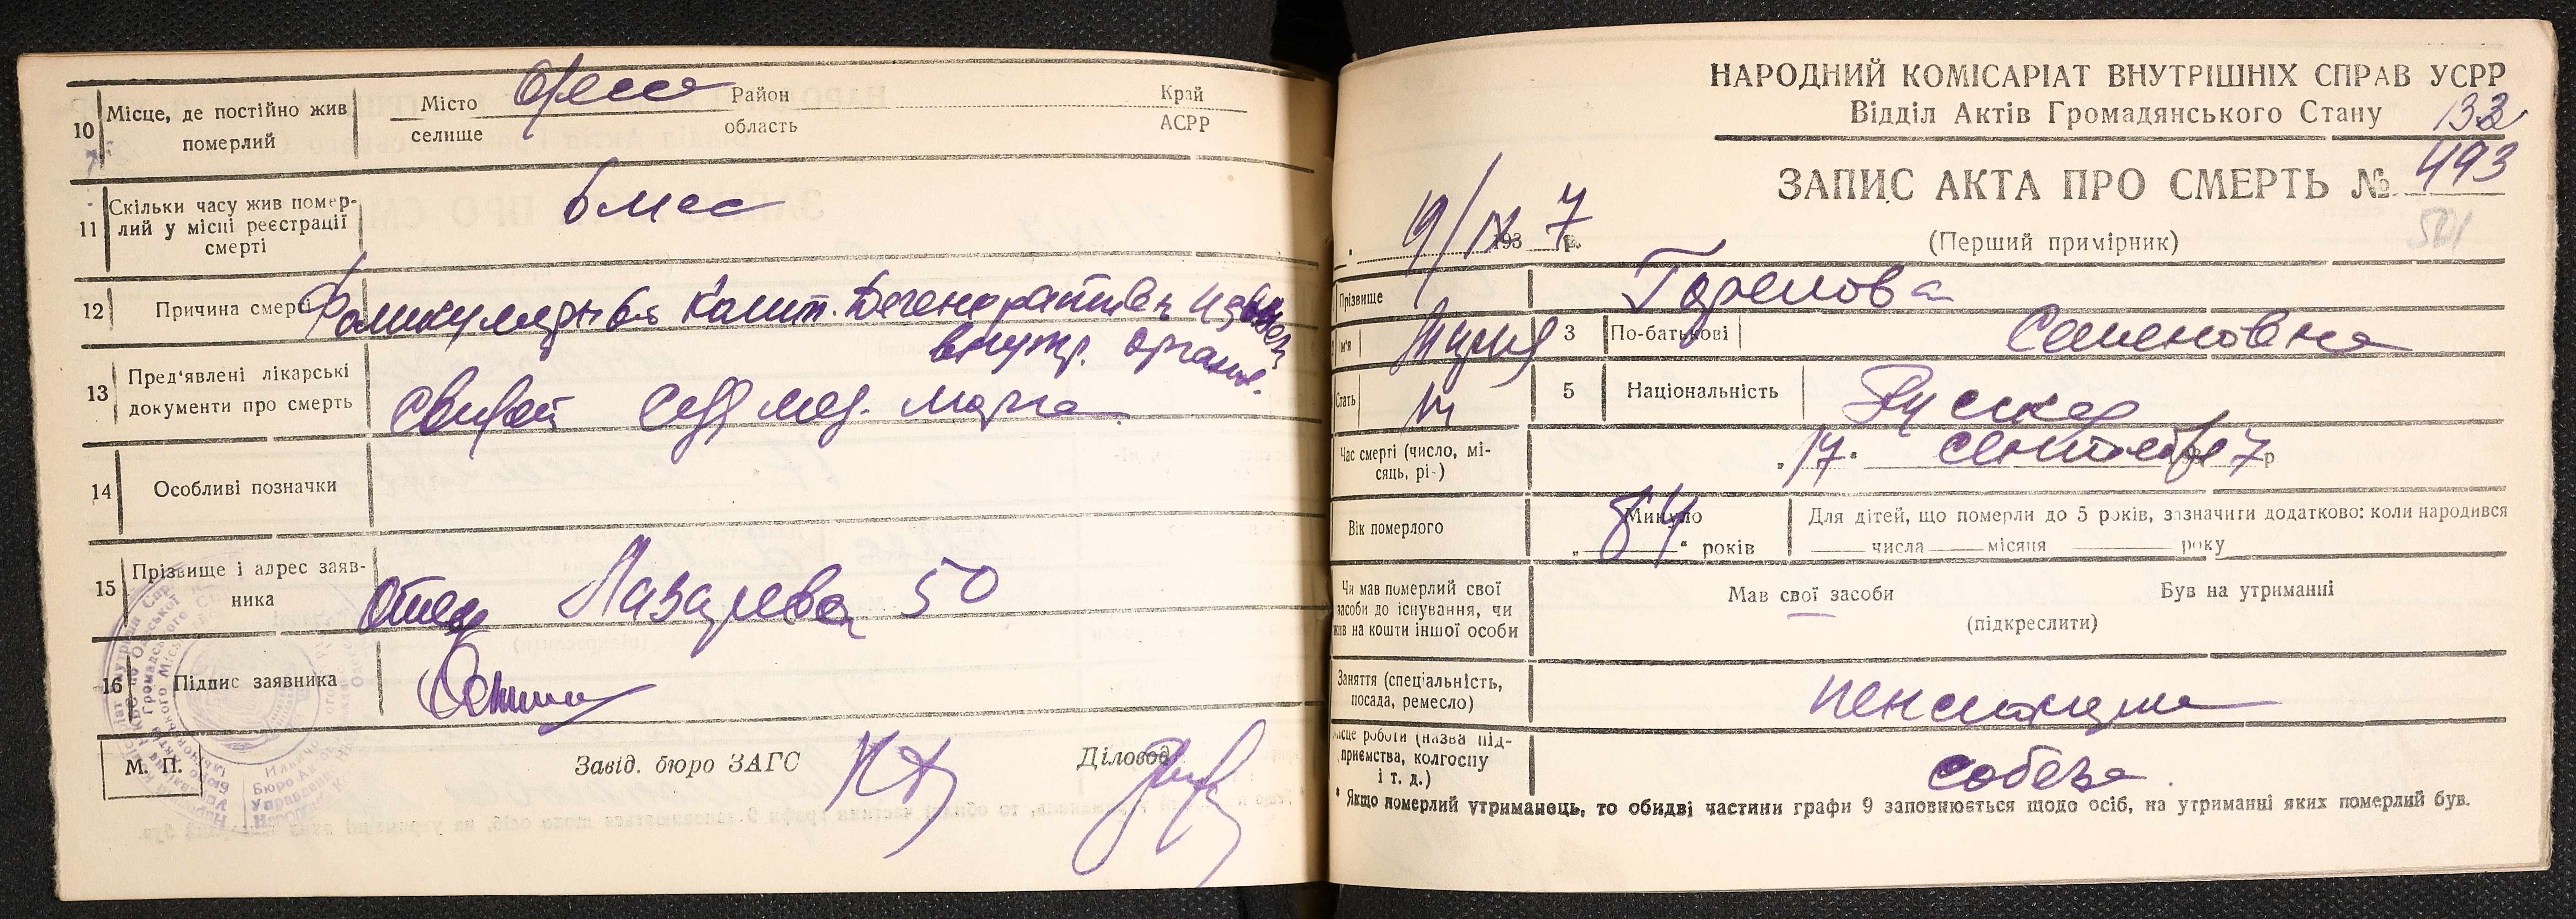 10
Місце, де постійно жив
померлий
Місто
селище
Одесса
Район
область
Край
АСРР
11
Скільки часу жив помер-
лий у місці реєстрації
смерті
6 мес
12
Причина смерті
Фоликулярный Колит. Дегеноративн измен
внутр. органов.
13
Пред'явлені лікарські
документи про смерть
Свидет Суд мед. морга
14
Особливі позначки
15
Прізвище і адрес заяв-
ника
Лазарева 50
16
Підпис заявника
М. П.
Завід. бюро ЗАГС
Діловод
НАРОДНИЙ КОМІСАРІАТ ВНУТРІШНІХ СПРАВ УСРР
Відділ Актів Громадянського Стану
132
ЗАПИС АКТА ПРО СМЕРТЬ № 493
(Перший примірник)
541
19/IX 193 7 р.
Прізвище
Горелова
м'я
3
По-батькові
Семеновна
Стать
5
Національність
Русская
Час смерті (число, мі-
сяць, рік)
"17" сентября 7 р
Вік померлого
Минуло
„ 84 " років
Для дітей, що померли до 5 років, зазначити додатково: коли народився
числа місяця року
Чи мав померлий свої
засоби до існування, чи
жив на кошти іншої особи
Мав свої засоби
Був на утриманні
(підкреслити)
Заняття (спеціальність,
посада, ремесло)
пенсионерка
Місце роботи (назва під-
приємства, колгоспу
і т. д.)
собеза
* Якщо померлий утриманець, то обидві частини графи 9 заповнюється щодо осіб, на утриманні яких померлий був.